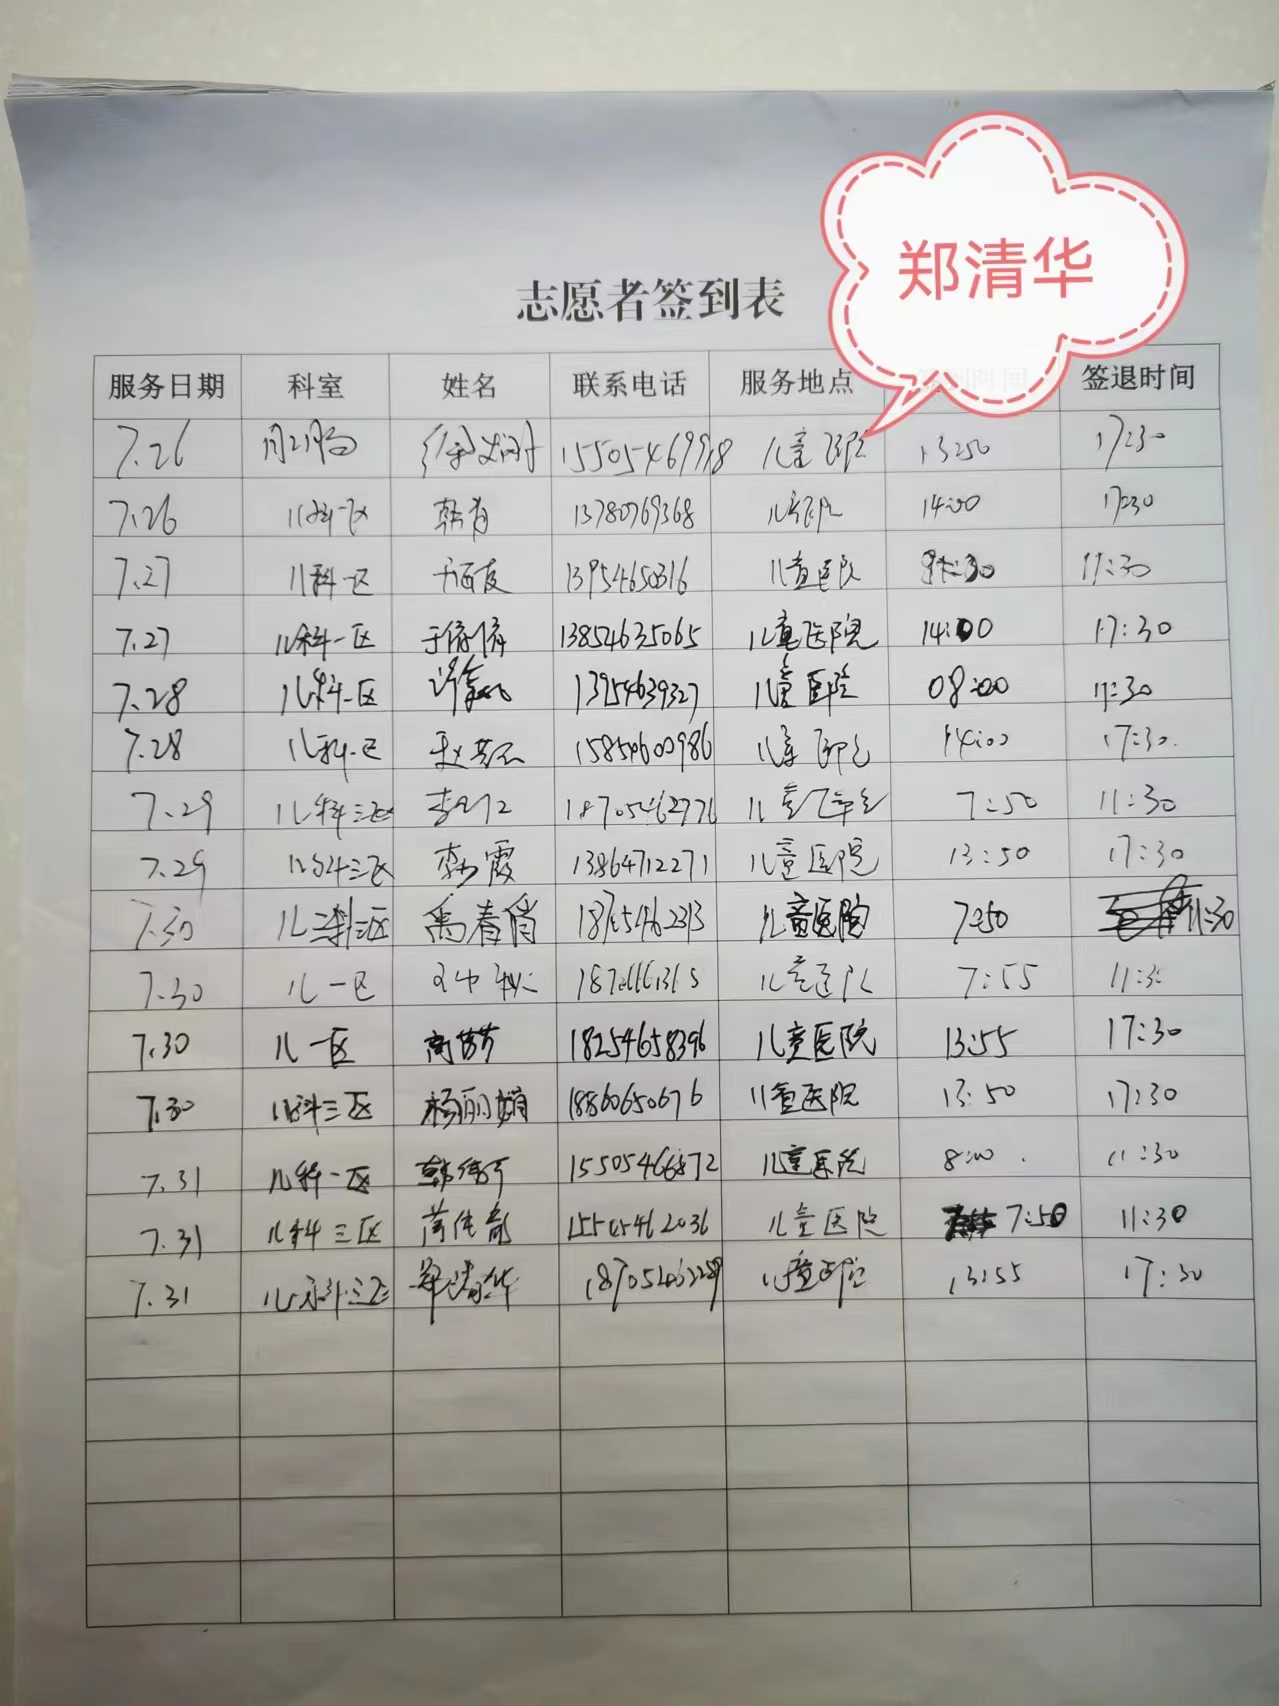 郑清华
志愿者签到表
服务日期 科室 姓名 联系电话 服务地点 签到时间 签退时间
7.26 15505469998 儿童医院 13:50 17:30
7.26 儿科一区 韩青 13780769368 儿童医院 14:00 17:30
7.27 儿科一区 13954650316 儿童医院 11:30
7.27 儿科一区 于倩倩 13854635065 儿童医院 14:00 17:30
7.28 儿科一区 13954639327 儿童医院 08:00 11:30
7.28 儿科一区 15854600986 儿童医院 14:00 17:30
7.29 儿科三区 18705462776 儿童医院 7:50 11:30
7.29 儿科三区 李霞 13864712271 儿童医院 13:50 17:30
7.30 儿科三区 禹春俏 18705462313 儿童医院 7:50 11:30
7.30 儿一区 儿童医院 7:55 11:30
7.30 儿一区 高苗苗 18254658396 儿童医院 13:55 17:30
7.30 儿科三区 杨丽娟 18860650676 儿童医院 13:50 17:30
7.31 儿科一区 15505466872 儿童医院 8:00 11:30
7.31 儿科三区 15505462036 儿童医院 7:50 11:30
7.31 儿科三区 郑清华 儿童医院 13:55 17:30